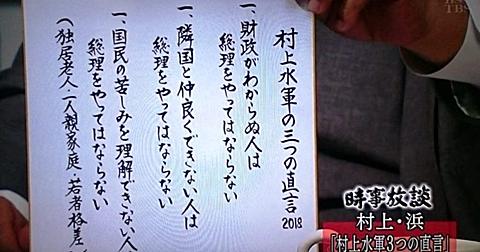 村上水軍の三つの直言
2018
一、財政がわからぬ人は
総理をやってはならない
一、隣国と仲良くできない人は
総理をやってはならない
一、国民の苦しみを理解できない人
総理をやってはならない
(独居老人・一人親家庭・若者格差
時事放談
村上・浜
「村上水軍3つの直言」
BS-TBS